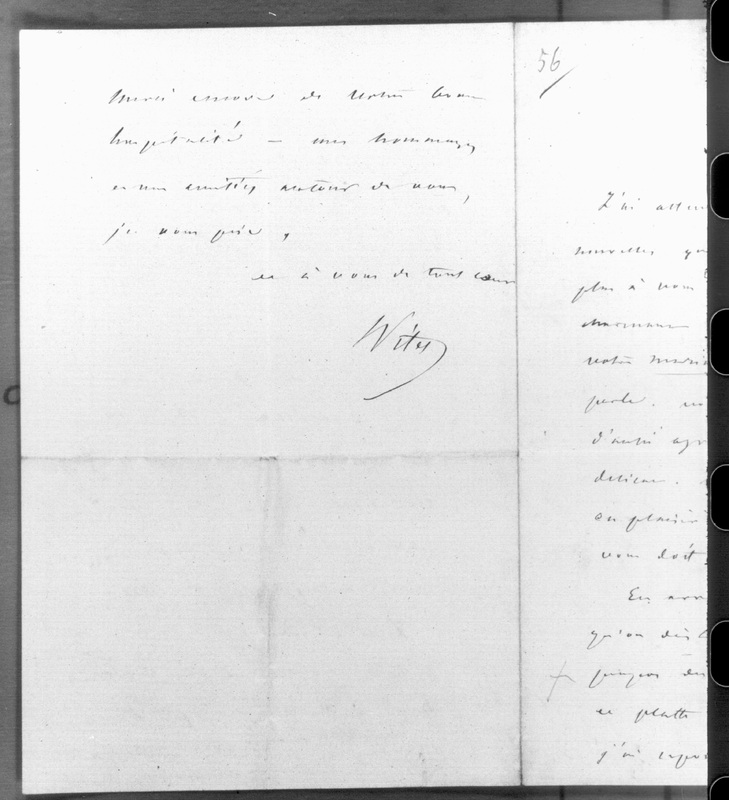 merci encore de votre bonne
hospitalité — mes hommages
et mes amitiés autour de vous,
je vous prie,
et à vous de tout cœur
Vitet
56
J'ai atten
nouvelles qu
plus à vous
charmant
votre mari
perle.
d'aussi agr
délicat.
au plaisir
vous doit
En arr
qu'on dis
jusques
et platt
j'ai